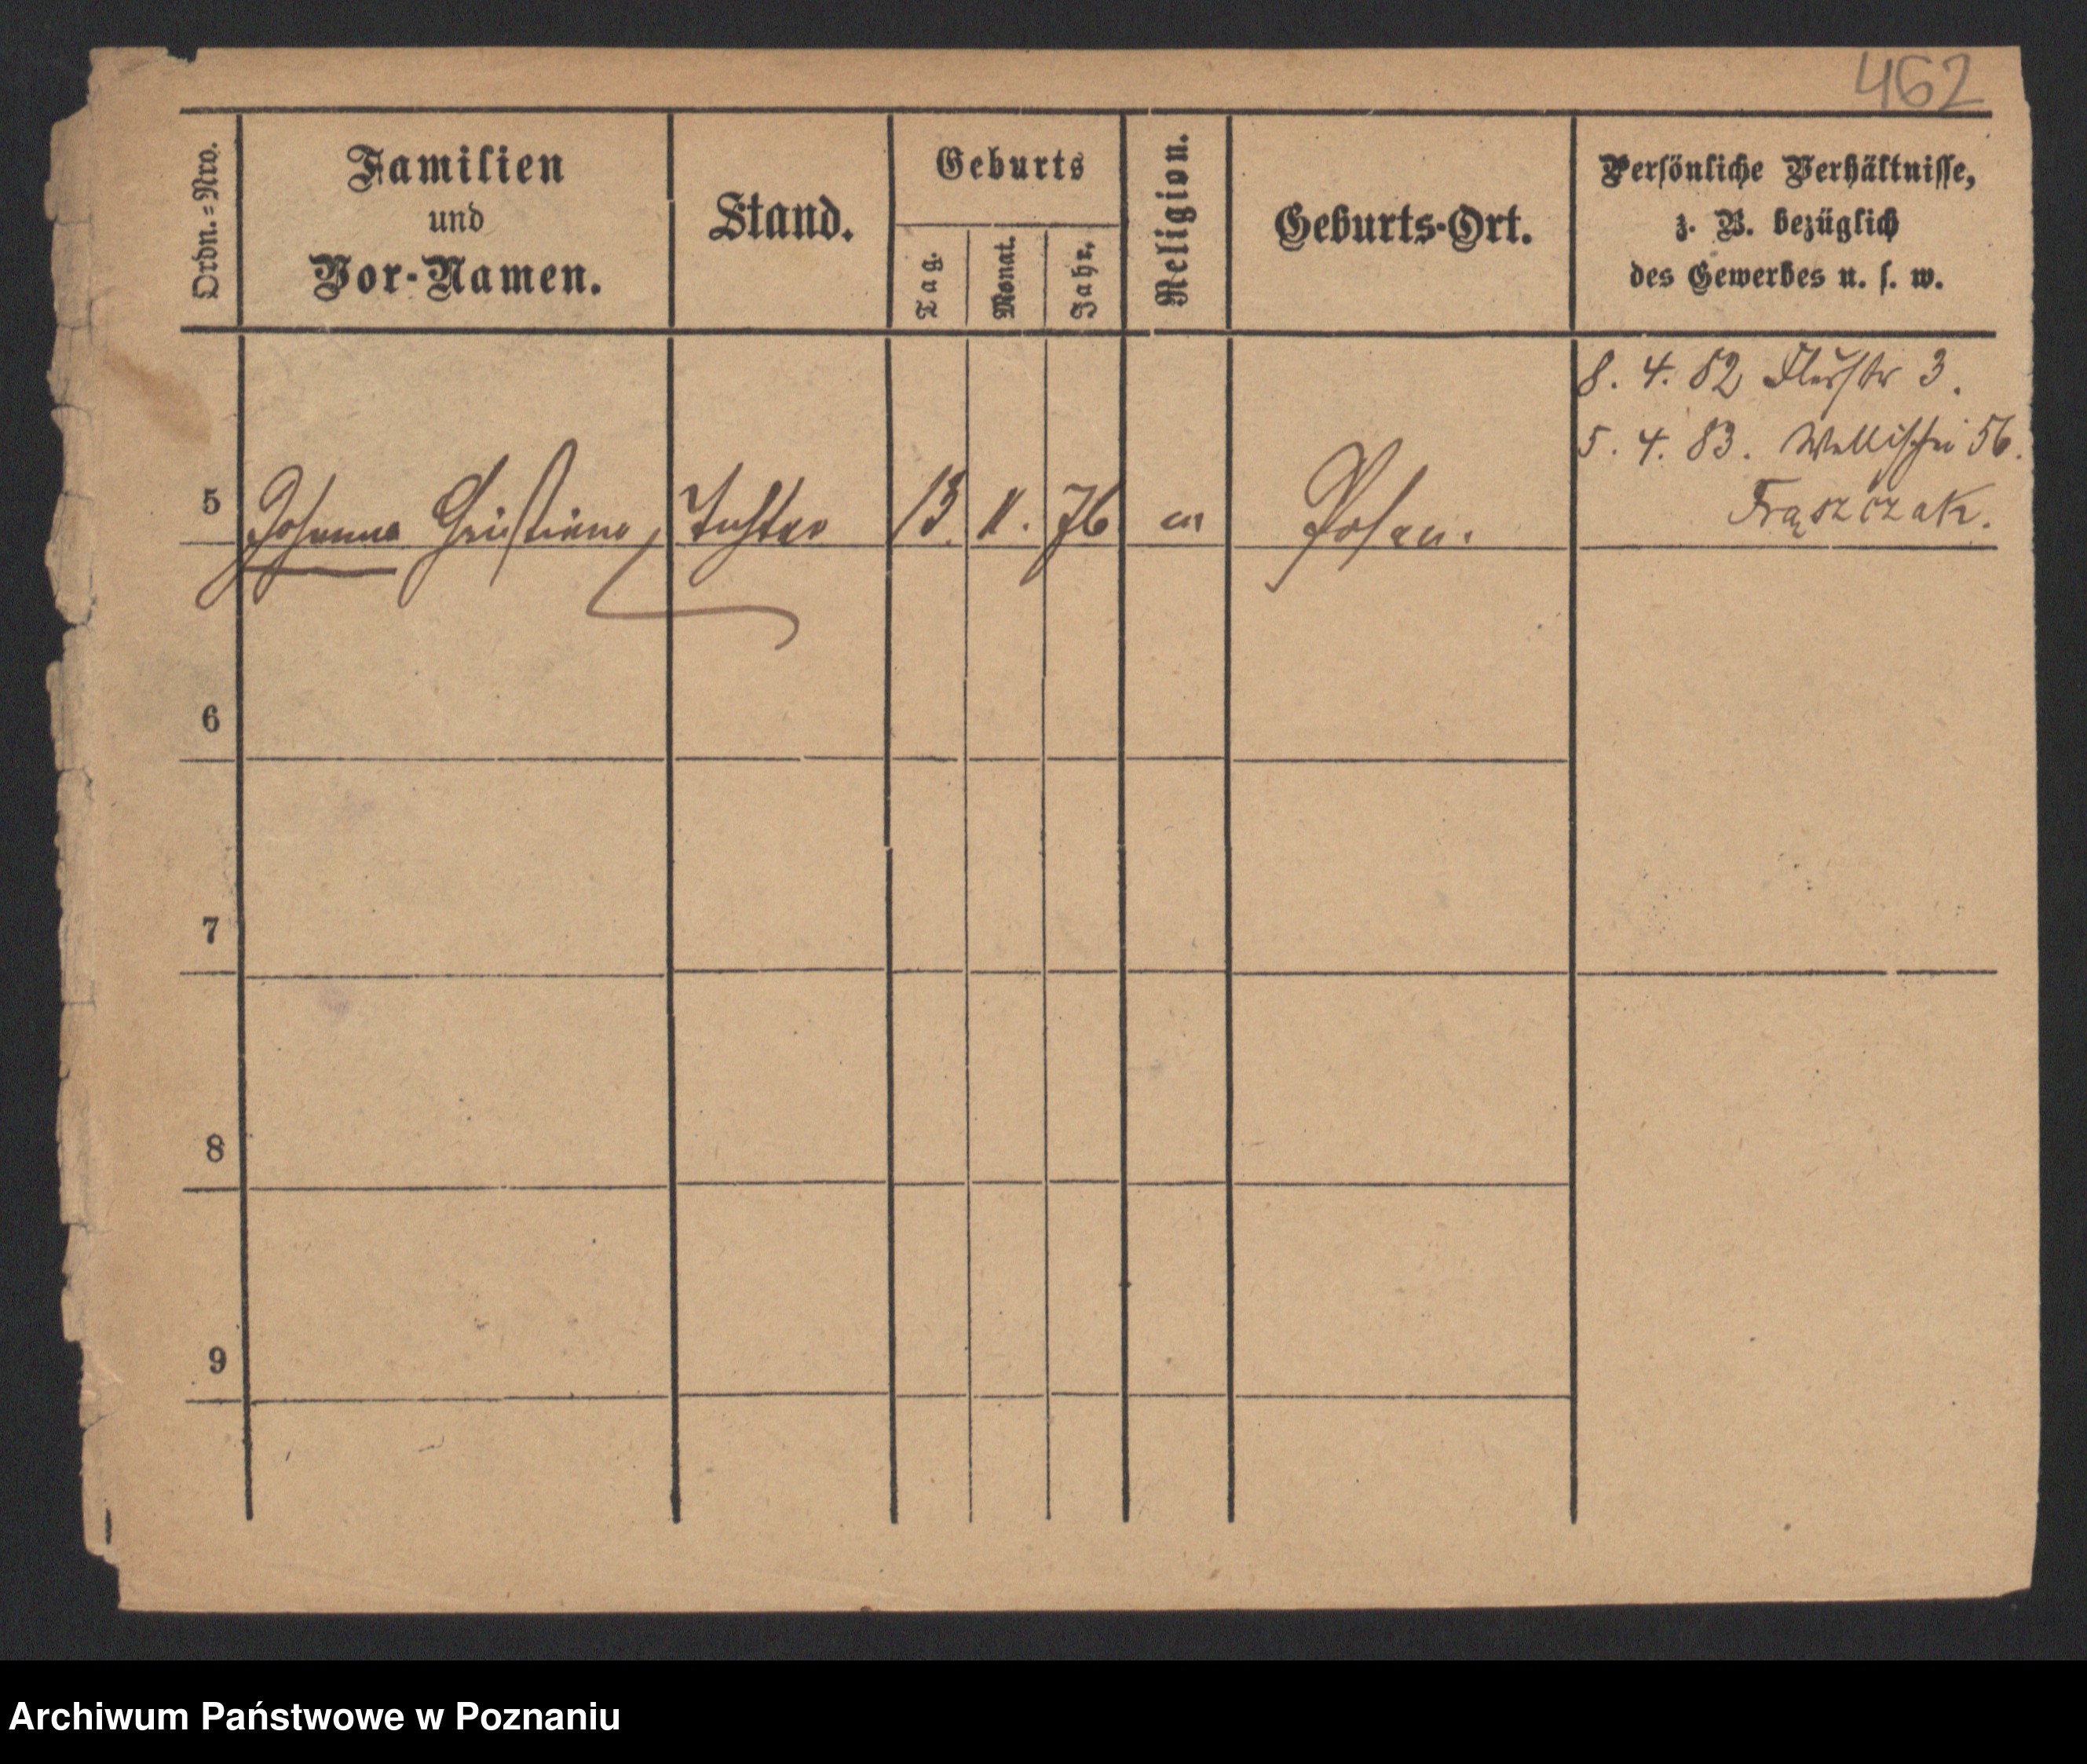 462
Ordn.=Nro.
Familien
und
Vor-Namen.
Stand.
Geburts
Tag.
Monat.
Jahr.
Religion.
Geburts-Ort.
Persönliche Verhältnisse,
z. B. bezüglich
des Gewerbes u. s. w.
8. 4. 82 3.
5. 4. 83. Wallischei 56.
Frąszczak.
5 Johanna Christiane, Tochter 13. 11. 76 Posen.
6
7
8
9
Archiwum Państwowe w Poznaniu